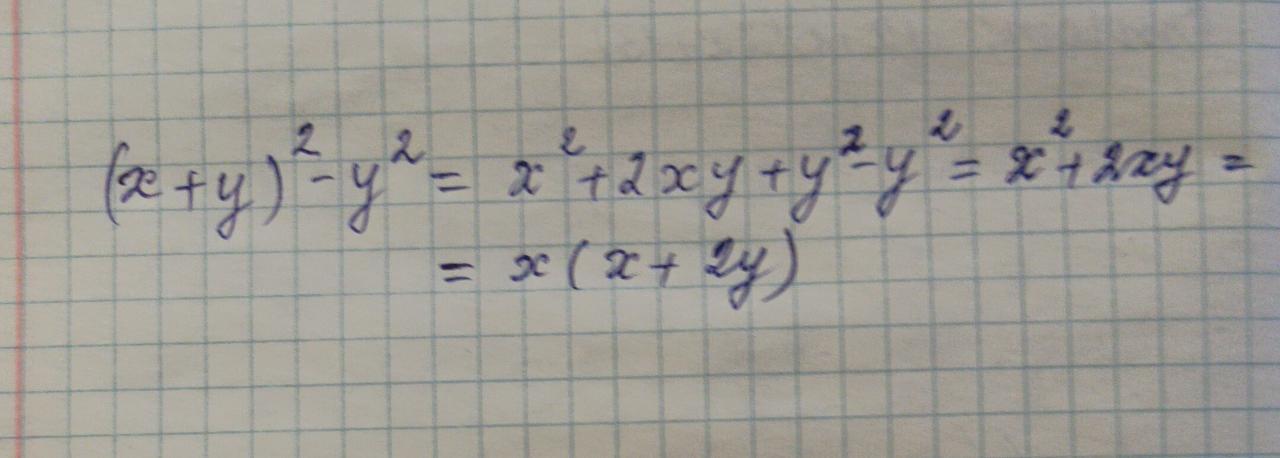 (x+y)² - y² = x² + 2xy + y² - y² = x² + 2xy =
= x(x + 2y)